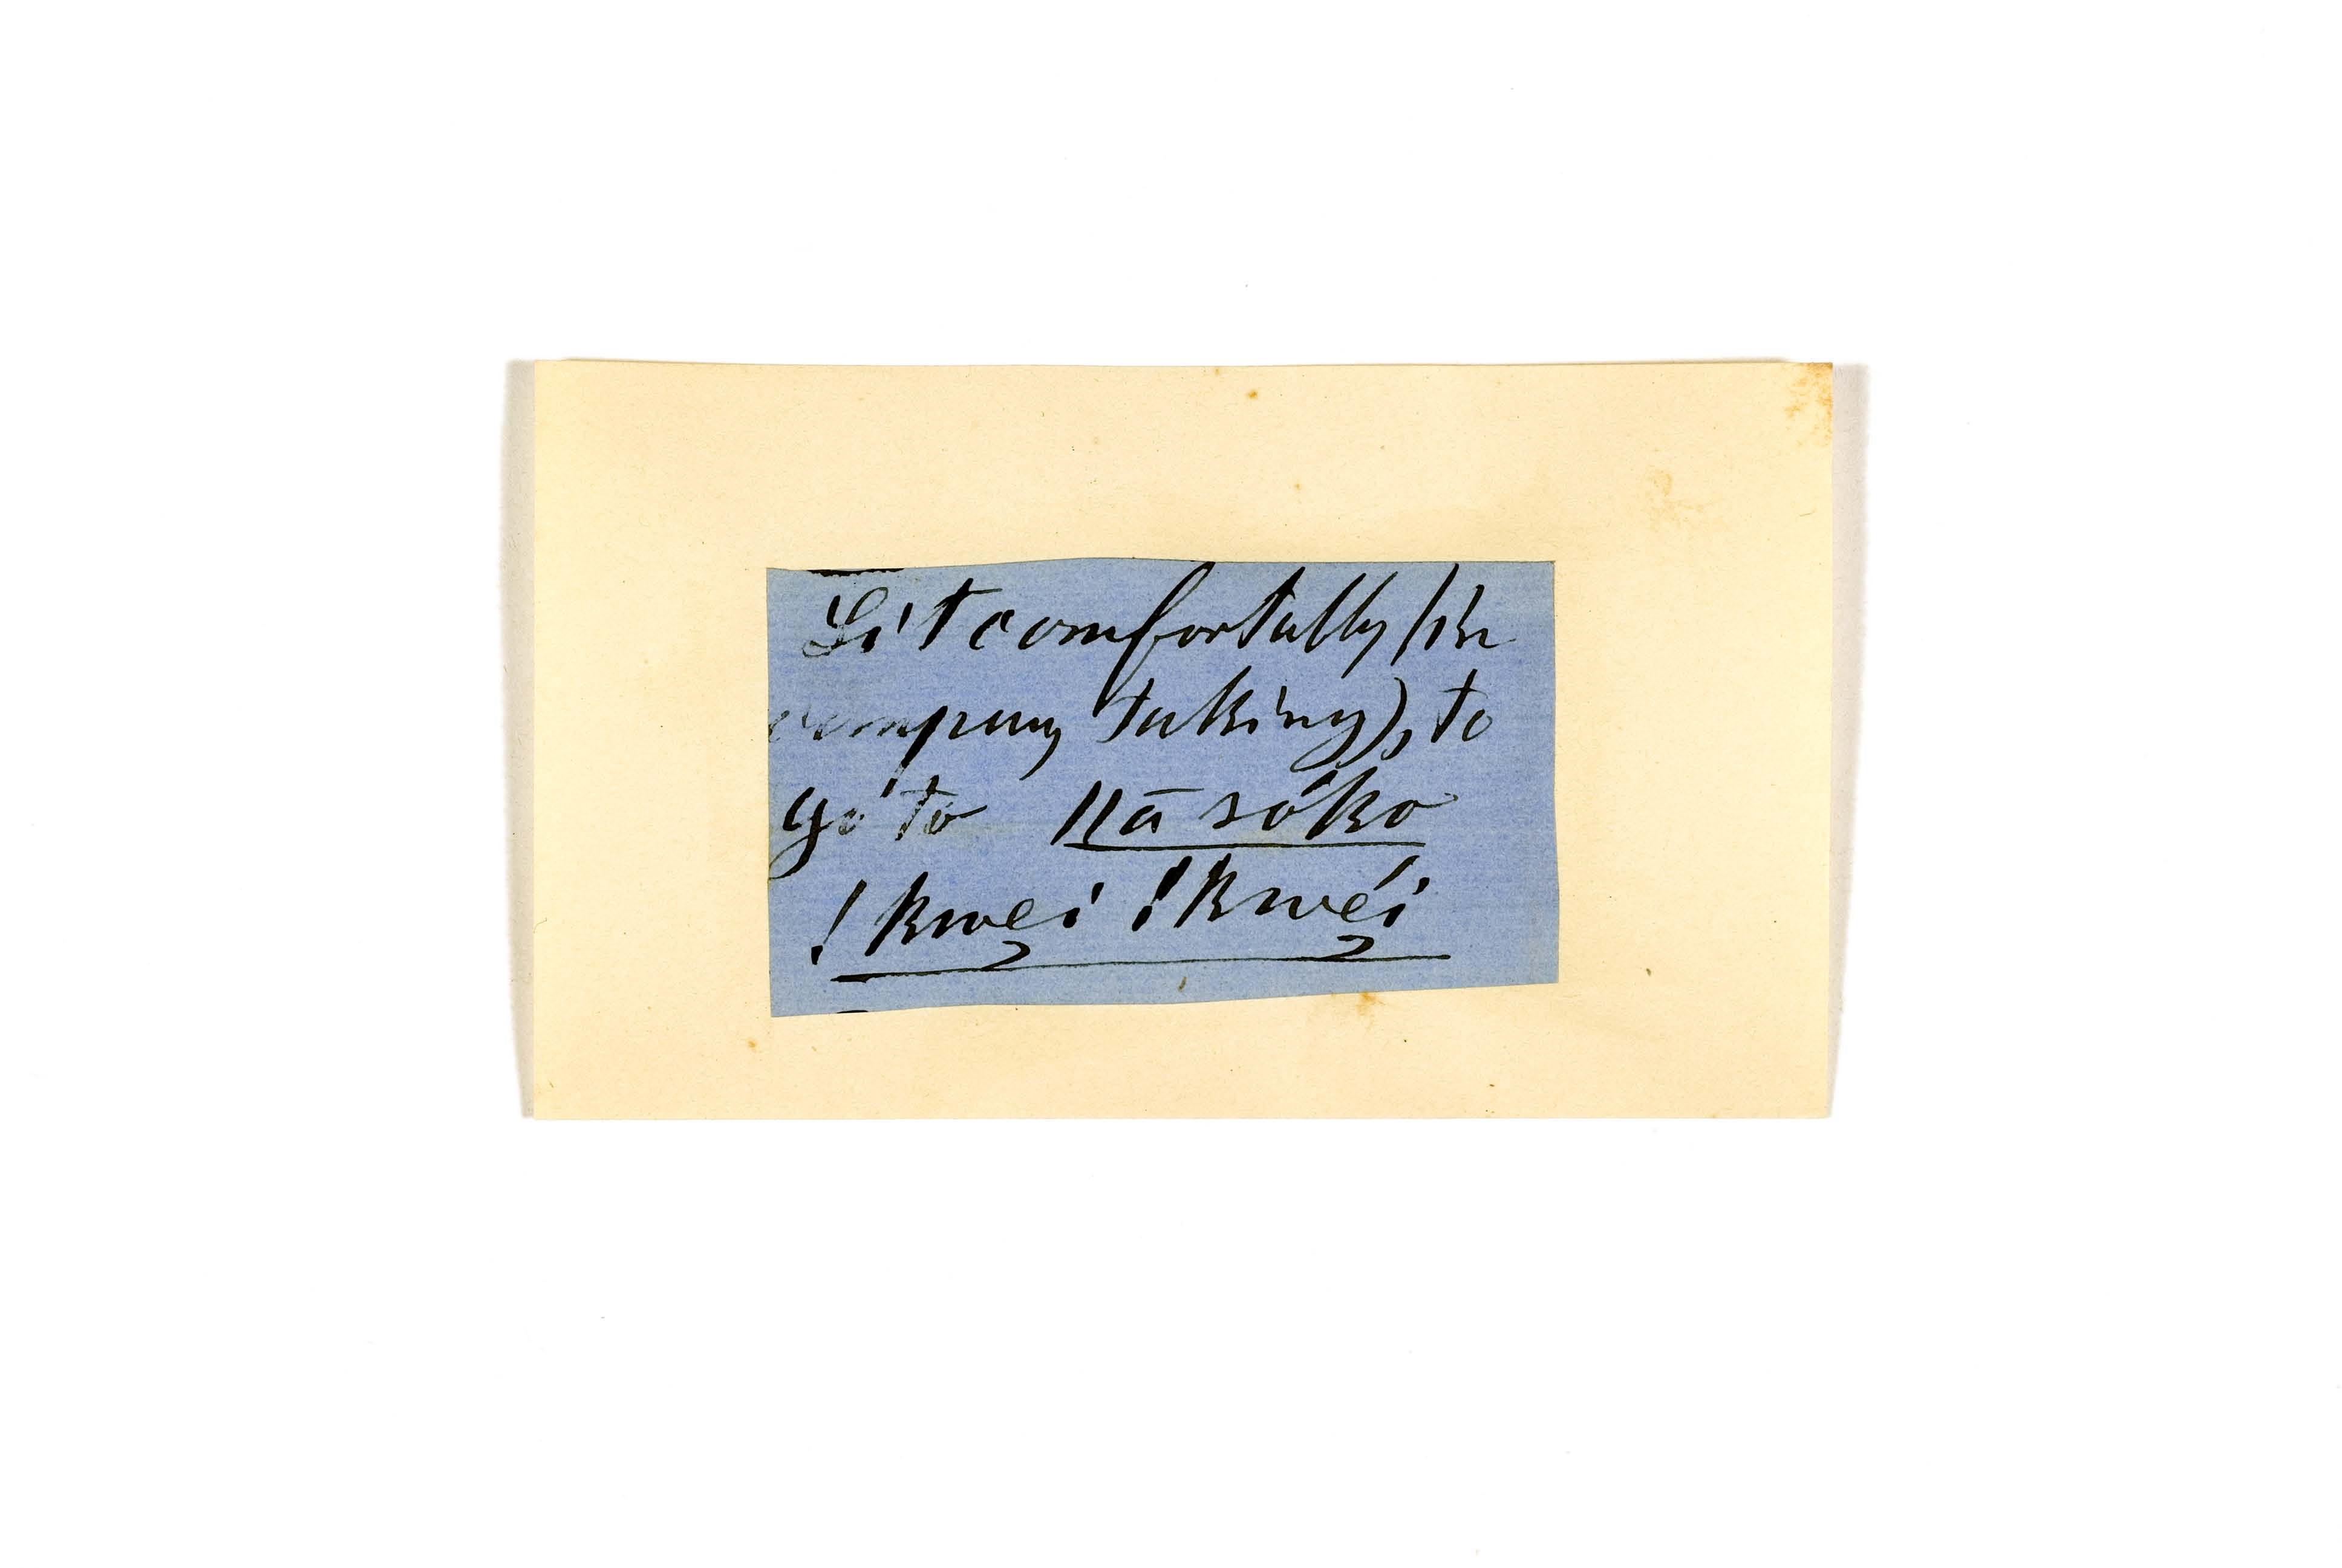 Sit comfortably (in
company taking), to
go to ǁā sóko
!kwe̹i !kwé̹i